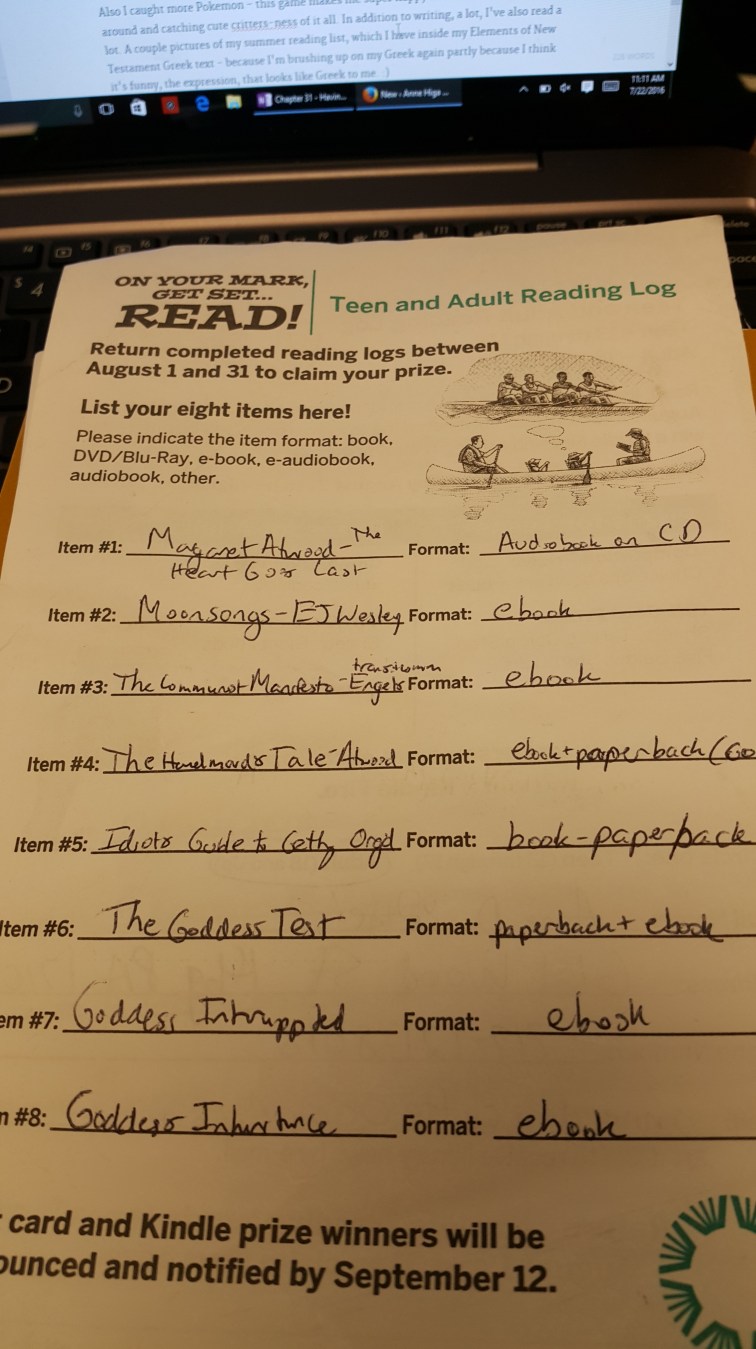 Also I caught more Pokemon - this game makes me
around and catching cute critters-ness of it all. In addition to writing, a lot, I've also read a
lot. A couple pictures of my summer reading list, which I have inside my Elements of New
Testament Greek text - because I'm brushing up on my Greek again partly because I think
it's funny, the expression, that looks like Greek to me. :)
WORDS
11:11 AM
Chapter 31 - Havin... New - Anne Higa ...
7/22/2016
F4 F5 F6 F7 F8 F9 F10 F11 F12 pause prt sc delete
$ 4
ON YOUR MARK,
GET SET...
READ!
Teen and Adult Reading Log
Return completed reading logs between
August 1 and 31 to claim your prize.
List your eight items here!
Please indicate the item format: book,
DVD/Blu-Ray, e-book, e-audiobook,
audiobook, other.
Item #1: Magaret Atwood - The Format: Audiobook on CD
Heart Goes Last
Item #2: Moonsongs - EJ Wesley Format: ebook
Item #3: The Communist Manifesto - Engels Format: ebook
Item #4: The Handmaid's Tale - Atwood Format: ebook + paperback (Go
Item #5: Idiots Guide to Getting Org'd Format: book - paperback
Item #6: The Goddess Test Format: paperback + ebook
em #7: Goddess Interrupted Format: ebook
n #8: Goddess Inheritance Format: ebook
card and Kindle prize winners will be
ounced and notified by September 12.